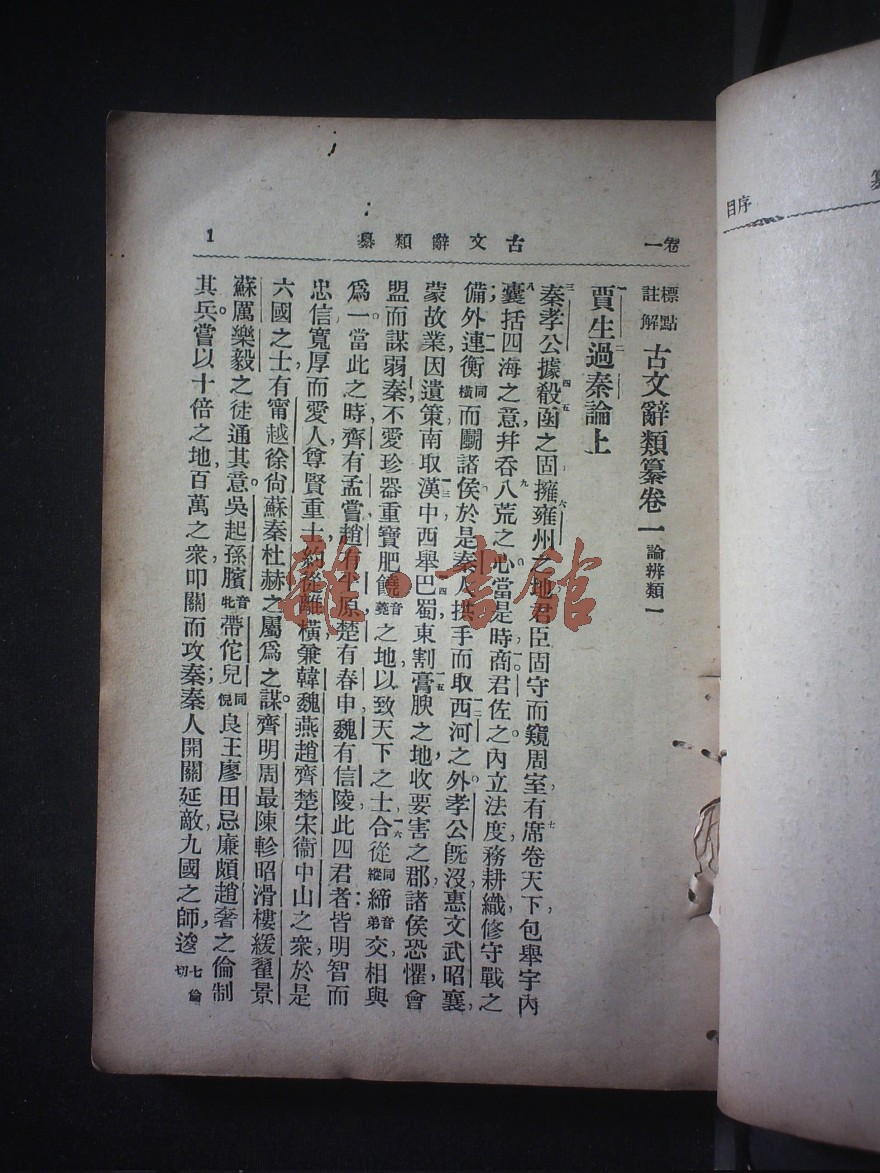 卷一
古文辭類纂
1
標點註解 古文辭類纂卷一 論辨類一
一賈生二過秦論上
三秦孝公據四殽五函之固，擁六雍州之地，君臣固守而窺周室，有七席卷天下，包舉宇內，
八囊括四海之意，幷吞九八荒之心。當是時，一〇商君佐之，內立法度，務耕織，修守戰之
備；外一一連衡同橫而鬬諸侯，於是秦人拱手而取一二西河之外。孝公旣沒，惠文武昭襄，
蒙故業，因遺策，南取一三漢中，西舉一四巴蜀，東割一五膏腴之地，收要害之郡。諸侯恐懼，會
盟而謀弱秦，不愛珍器重寶肥饒音蕘之地，以致天下之士，一六合從同縱締音弟交，相與
爲一。當此之時，齊有孟嘗，趙有平原，楚有春申，魏有信陵，此四君者：皆明智而
忠信，寬厚而愛人，尊賢重士，約從離橫，兼韓魏燕趙齊楚宋衞中山之衆。於是
六國之士，有甯越徐尙蘇秦杜赫之屬爲之謀。齊明周最陳軫昭滑樓緩翟景
蘇厲樂毅之徒通其意。吳起孫臏音牝帶佗兒同倪良王廖田忌廉頗趙奢之倫制
其兵。嘗以十倍之地，百萬之衆，叩關而攻秦；秦人開關延敵，九國之師，逡七倫切
雜·書館
目序